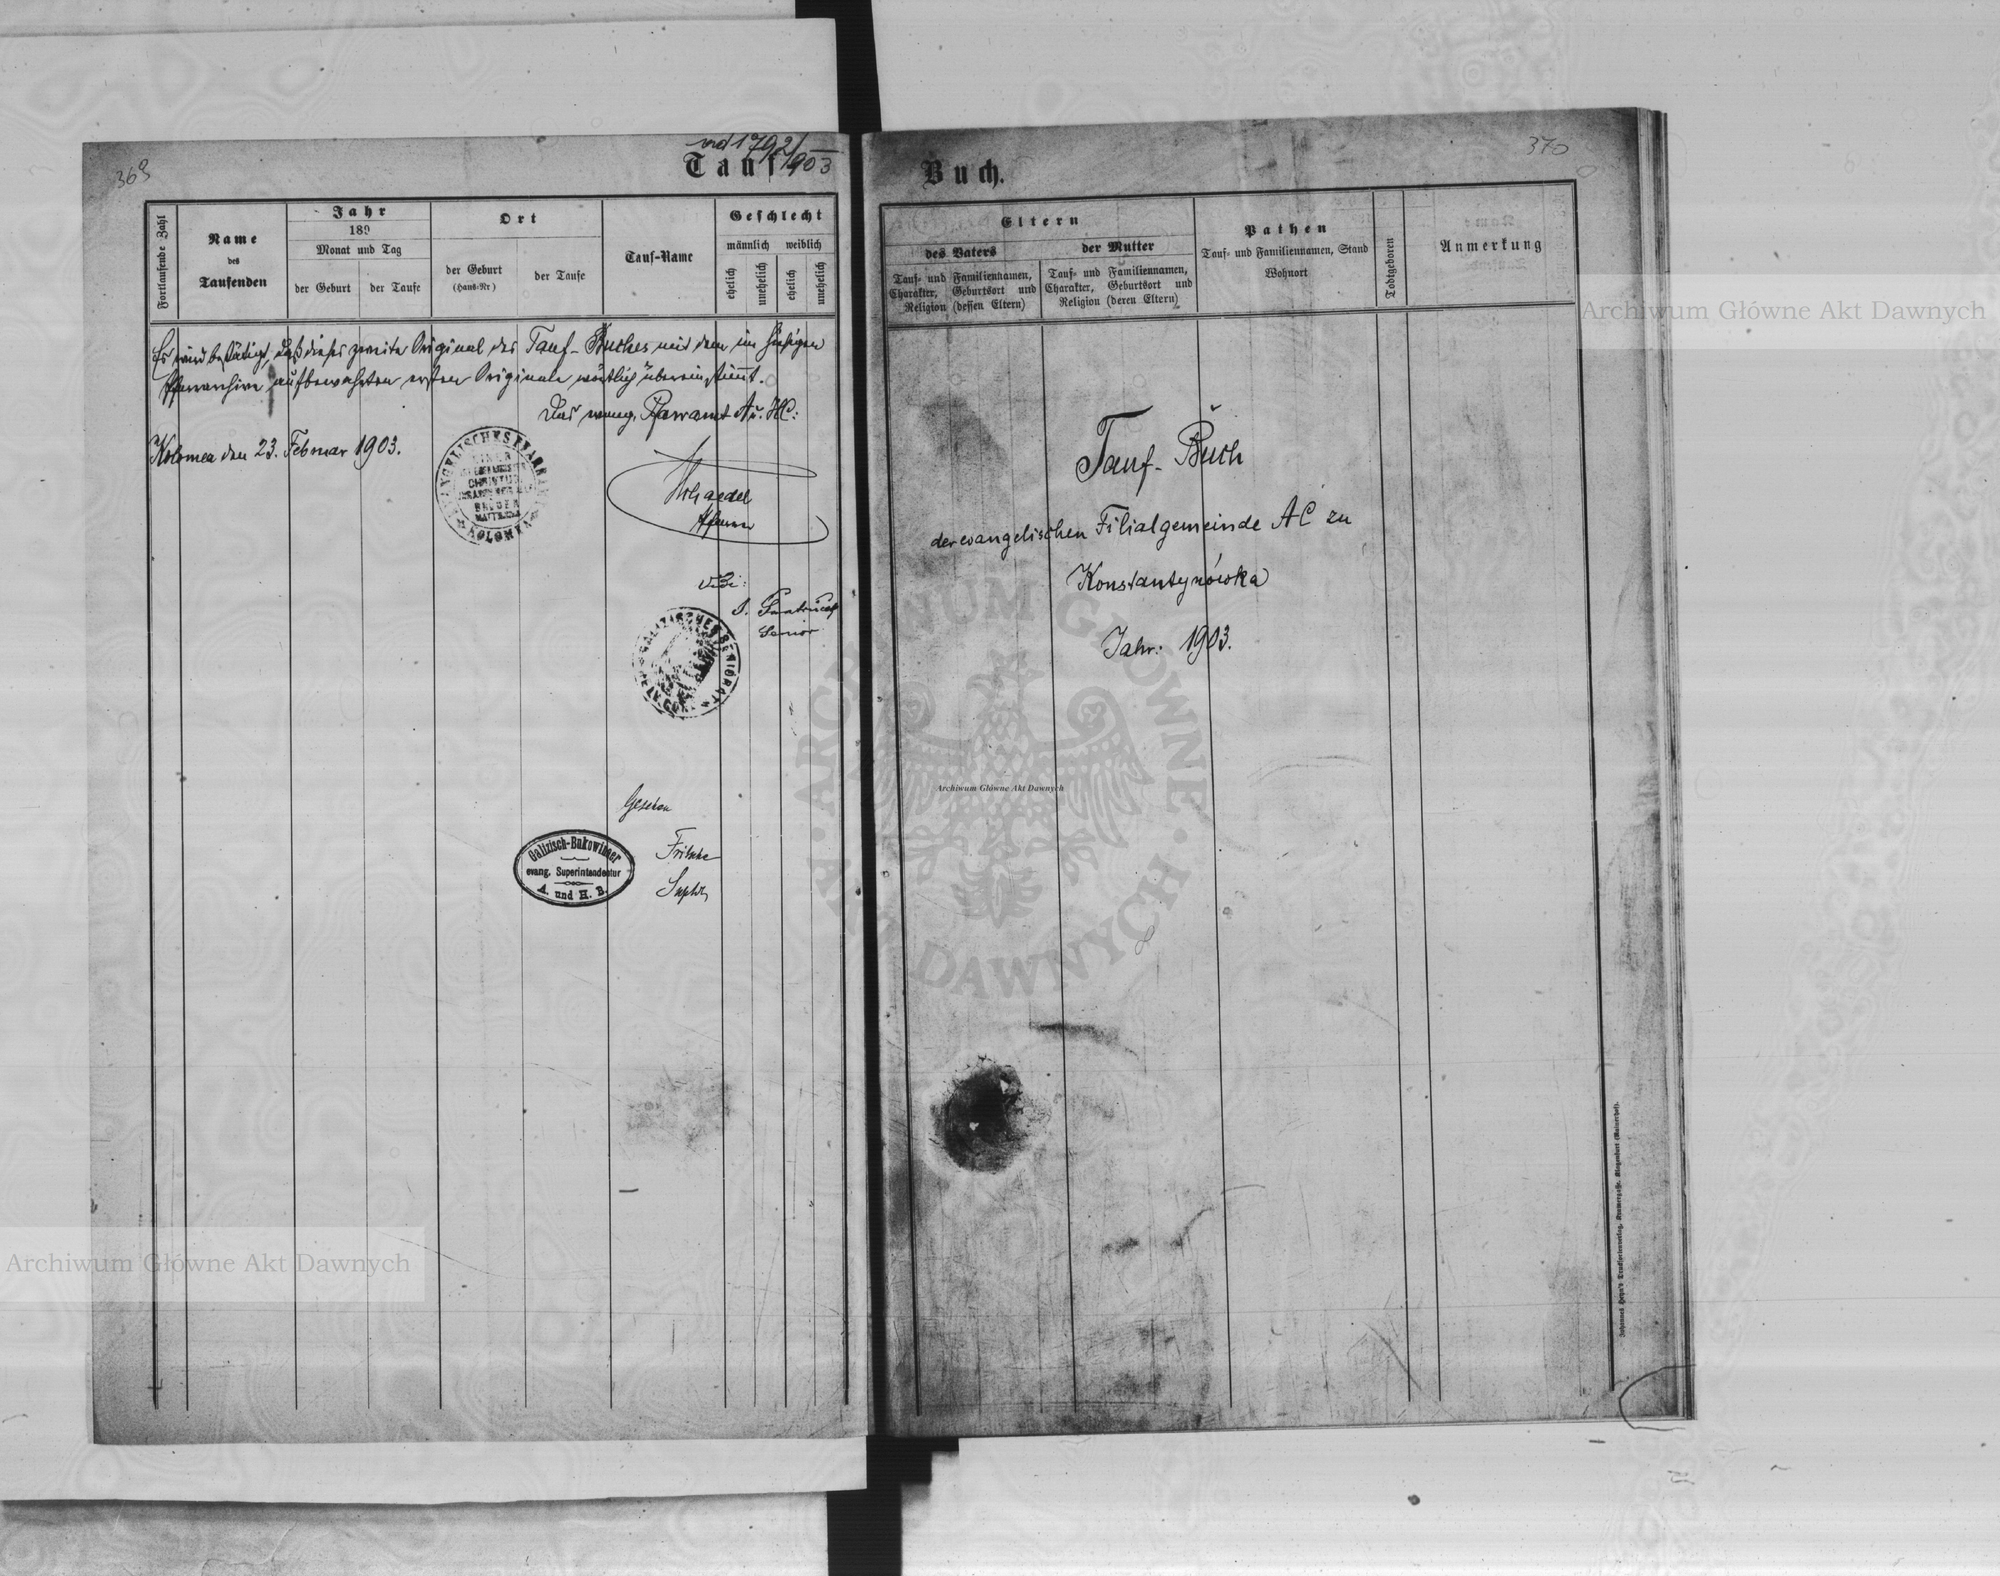 369
ad 1792/1903
Tauf
Fortlaufende Zahl
Name
des
Taufenden
Jahr
189
Monat und Tag
der Geburt
der Taufe
Ort
der Geburt
(Haus-Nr)
der Taufe
Tauf-Name
Geschlecht
männlich weiblich
ehelich
unehelich
ehelich
unehelich
Es wird bestätigt, daß dieses zweite Original des Tauf-Buches mit dem im hiesigen
Pfarrarchive aufbewahrten ersten Originale wörtlich übereinstimmt.
Das evang. Pfarramt A u. HC:
Kolomea den 23. Februar 1903.
EVANGELISCHES PFARRAMT
EINER
CHRISTUS
BRUDER
MATTH
KOLOMEA
Pfarrer
Vidi:
Senior
GALIZISCHES SENIORAT
Gesehen
Fritsche
Suptdt
Galizisch-Bukowiner
evang. Superintendentur
A. und H. B.
370
Buch.
Eltern
des Vaters
Tauf- und Familiennamen,
Charakter, Geburtsort und
Religion (dessen Eltern)
der Mutter
Tauf- und Familiennamen,
Charakter, Geburtsort und
Religion (deren Eltern)
Pathen
Tauf- und Familiennamen, Stand
Wohnort
Todtgeboren
Anmerkung
Tauf-Buch
der evangelischen Filialgemeinde AC zu
Konstantynówka
Jahr: 1903.
Archiwum Główne Akt Dawnych
Archiwum Główne Akt Dawnych
ARCHIWUM GŁÓWNE · AKT DAWNYCH ·
Archiwum Główne Akt Dawnych